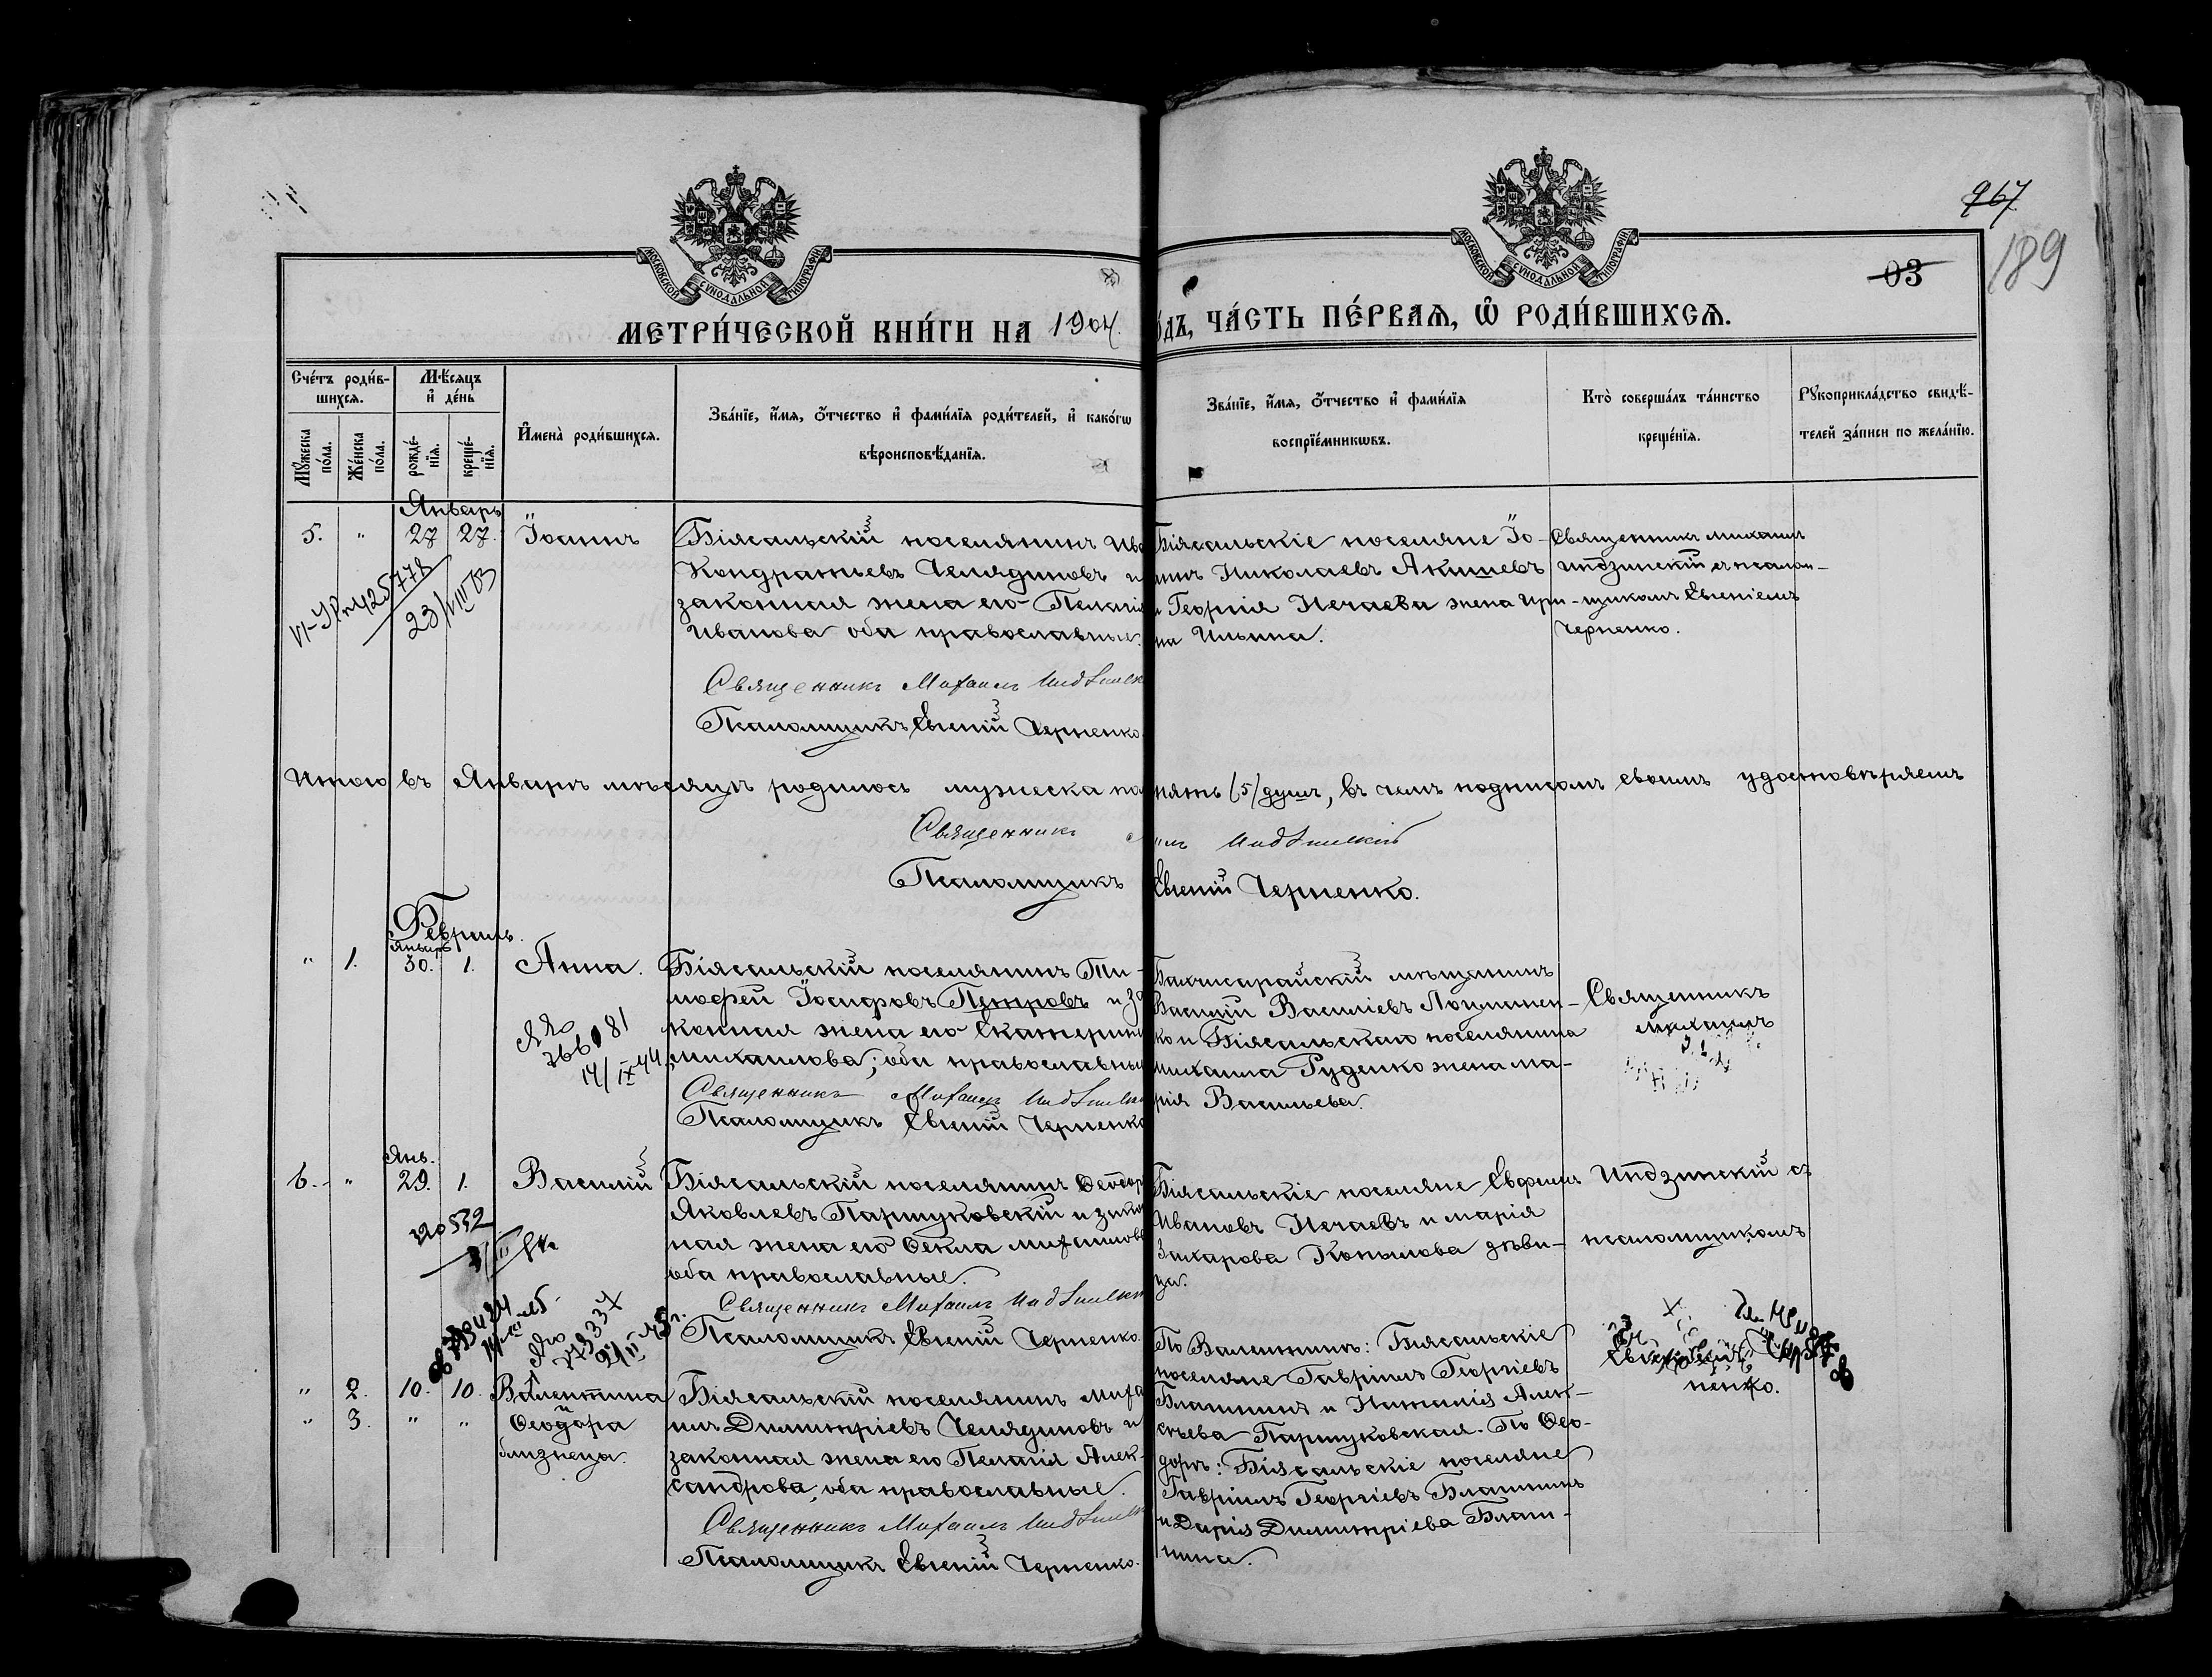 967
189
03
МОСКОВСКОЙ СѴНОДАЛЬНОЙ ТИПОГРАФІИ
МОСКОВСКОЙ СѴНОДАЛЬНОЙ ТИПОГРАФІИ
МЕТРИ́ЧЕСКОЙ КНИ́ГИ НА 1904
о́дъ, ЧА́СТЬ ПЕ́РВАѦ, Ѡ҆ РОДИ́ВШИХСѦ.
Сче́тъ роди́в-
шихсѧ.
Мѣ́сѧцъ
и҆ де́нь
Мꙋ́жеска
по́ла.
Же́нска
по́ла.
рожде́-
нїѧ.
креще́-
нїѧ.
И҆мена̀ роди́вшихсѧ.
Зва́нїе, и҆́мѧ, ѻ҆́тчество и҆ фами́лїѧ роди́телей, и҆ како́гѡ
вѣроисповѣ́данїѧ.
Зва́нїе, и҆́мѧ, ѻ҆́тчество и҆ фами́лїѧ
воспрїе́мникѡвъ.
Кто̀ соверша́лъ та́инство
креще́нїѧ.
Рꙋкоприкла́дство свидѣ́-
телей за́писи по жела́нїю.
Январь
5. " 27 27. Іоаннъ
Біясальскій поселянинъ Ива
Кондратьевъ Челядиновъ и
законная жена его Пелагія
Иванова оба православные.
Священникъ Михаилъ Индзинск
Псаломщикъ Евгеній Черненко
Біясальскіе поселяне Іо-
аннъ Николаевъ Акишевъ
и Георгія Нечаева жена Ири-
на Ильина.
Священникъ Михаилъ
Индзинскій съ псалом-
щикомъ Евгеніемъ
Черненко.
VI-УР №425778
23/VIII 13
Итого въ Январѣ мѣсяцѣ родилось мужеска по
пять (5) душъ, въ чемъ подписомъ своимъ удостовѣряемъ
Священникъ
илъ Индзинскій
Псаломщикъ
Евгеній Черненко.
Февраль.
Январь
" 1. 30. 1. Анна.
Біясальскій поселянинъ Ти-
мофей Іосифовъ Петровъ и за
конная жена его Екатерина
Михаилова; оба православны
Священникъ Михаилъ Индзинск
Псаломщикъ Евгеній Черненко
Бахчисарайскій мѣщанинъ
Василій Василіевъ Лоцманен-
ко и Біясальскаго поселянина
Михаила Руденко жена Ма-
рія Васильева.
Священникъ
Михаилъ
ЯЯо
366181
14/IX 44
Янв.
6. " 29. 1. Василій
Біясальскій поселянинъ Ѳеодор
Яковлевъ Паршуковскій и закон
ная жена его Ѳекла Михаилова
оба православные.
Священникъ Михаилъ Индзинск
Псаломщикъ Евгеній Черненко.
Біясальскіе поселяне Евфимъ
Ивановъ Нечаевъ и Марія
Захарова Копылова дѣви-
ца.
Индзинскій съ
псаломщикомъ
320532
" 2. 10. 10. Валентина
" 3. " " Ѳеодора
близнецы.
Біясальскій поселянинъ Миха
илъ Димитріевъ Челядиновъ и
законная жена его Пелагія Алек-
сандрова, оба православные.
Священникъ Михаилъ Индзинск
Псаломщикъ Евгеній Черненко.
По Валентинѣ: Біясальскіе
поселяне Гавріилъ Георгіевъ
Влашинъ и Наталія Алек-
сѣева Паршуковская. По Ѳео-
дорѣ: Біясальскіе поселяне
Гавріилъ Георгіевъ Влашинъ
и Дарія Димитріева Влаш-
нина.
ненко.